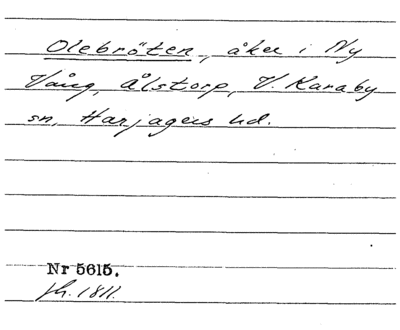 Olebröten, åker i Ny
Vång, Ålstorp, V. Karaby
sn, Harjagers hd.
Nr 5615.
sk. 1811.